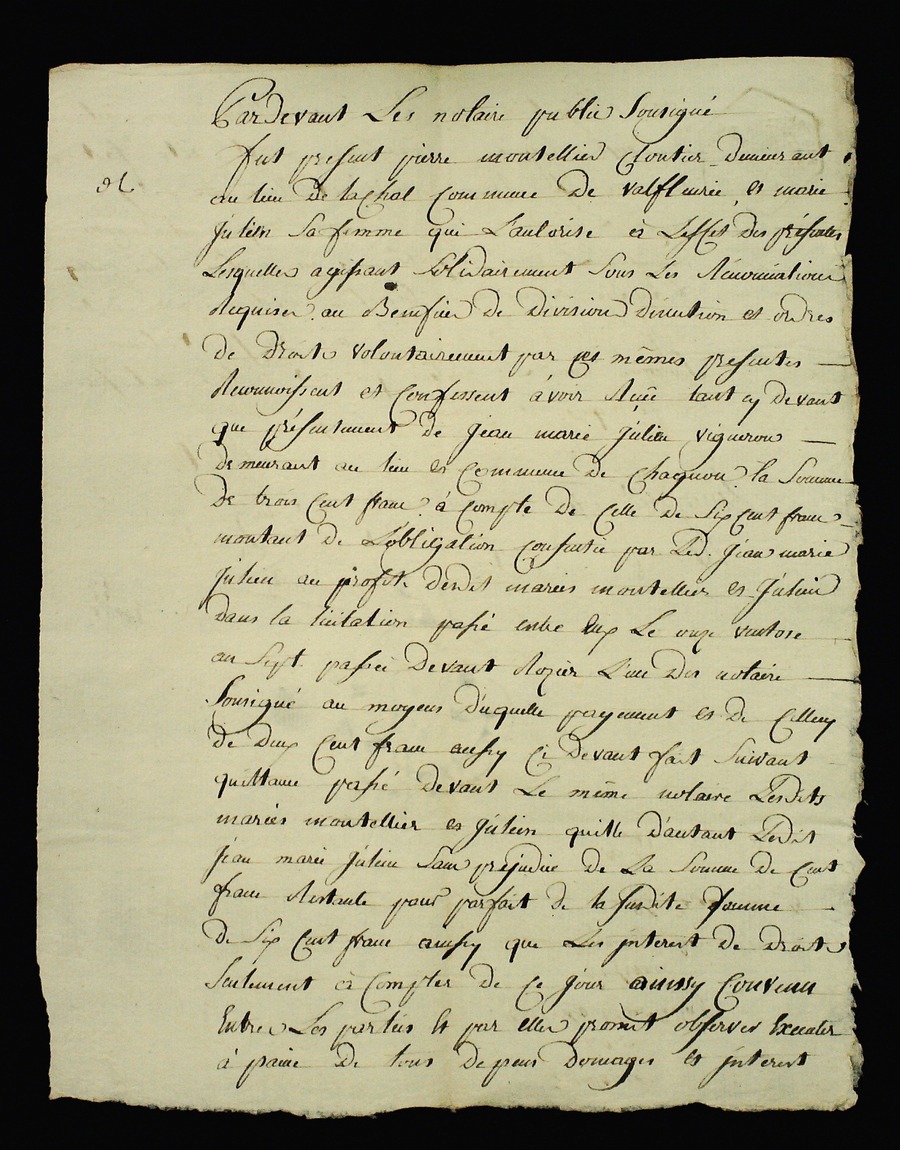 Pardevant Les notaire public Sousigné
fut present pierre montellier Cloutier demeurant
au lieu De lachal Commune De valfleurie, et marie
Julien Sa femme qui Lautorise à Leffet Des présentes
Lesquelles agissant Solidairement Sous Les Renonciations
Requises au Benefice de Division Discution et ordres
de Droits volontairement par ces mêmes presentes
Reconnoissent et Confessent avoir Reçu tant cy devant
que présentement de Jean marie Julien vigneron
demeurant au lieu et Commune de Chagnon la Somme
De trois Cent franc à Compte de Celle de Six Cent franc
montant de Lobligation Consentie par Led. Jean marie
Julien au profit desdit mariés montellier et Julien
dans la licitation passé entre Eux Le onze ventose
an Sept. passée Devant Rozier L'un Des notaire
Sousigné au moyens duquelle payement et De Celluy
de Deux Cent franc aussy Ci devant fait Suivant
quittance passé devant Le même notaire Lesdits
mariés montellier et Julien quitte dautant Ledit
Jean marie Julien Sans préjudice de La Somme de Cent
franc Restante pour parfait de la Susdite Somme
de Six Cent franc aussy que Les jnterest de droits
Seulement à Compter de ce jour ainssy Convenu
Entre Les parties Et par elles promit observer Executer
à paine De tous depens Domages et jnterest